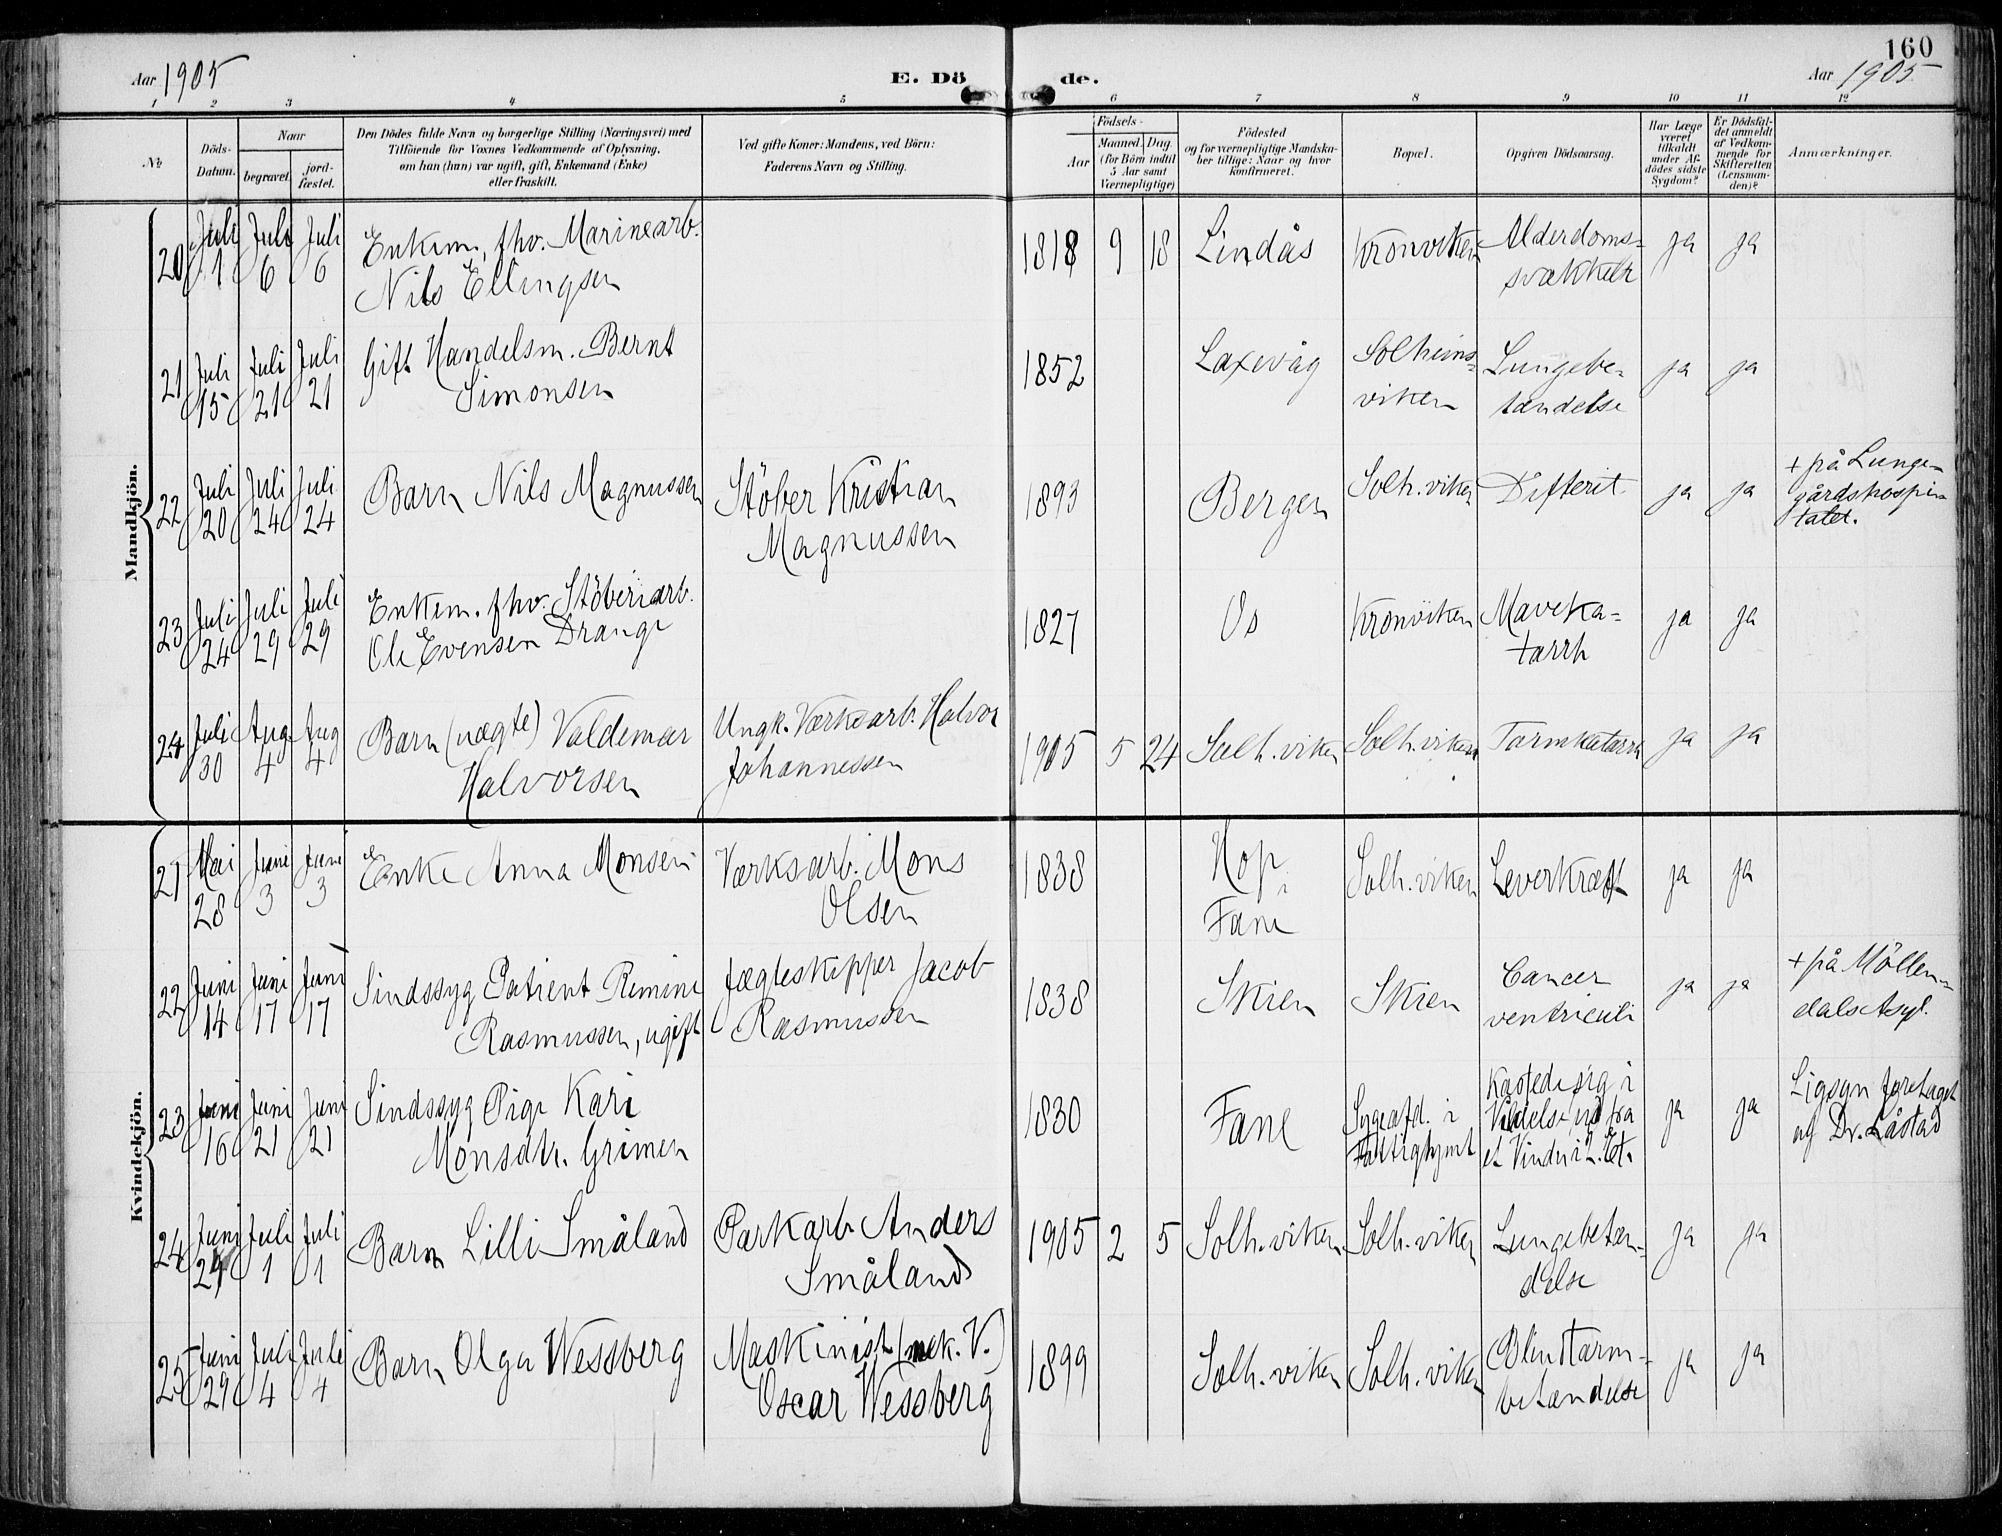 160
Aar 1905
E. Dö de.
Aar 1905
1 2 3 4 5 6 7 8 9 10 11 12
№
Döds-
Datum.
Naar
begravet.
jord-
fæstet.
Den Dödes fulde Navn og borgerlige Stilling (Næringsvei) med
Tilföiende for Voxnes Vedkommende af Oplysning,
om han (hun) var ugift, gift, Enkemand (Enke)
eller fraskilt.
Ved gifte Koner: Mandens, ved Börn:
Faderens Navn og Stilling.
Födsels-
Aar
Maaned. Dag.
(for Börn indtil
5 Aar samt
Værnepligtige)
Födested
og for værnepligtige Mandska-
ber tillige: Naar og hvor
konfirmeret.
Bopæl.
Opgiven Dödsaarsag.
Har Læge
været
tilkaldt
under Af-
dödes sidste
Sygdom?
Er Dödsfal-
det anmeldt
af Vedkom-
mende for
Skifteretten
(Lensman-
den)?
Anmærkninger.
Mandkjön.
20 Juli 1 Juli 6 Juli 6
Enkem. fhv. Marinearb.
Nils Ellingsen
1818 9 18 Lindås Kronviken
Alderdoms-
svækkelse
ja ja
21 Juli 15 Juli 21 Juli 21
Gift Handelsm. Bernt
Simonsen
1852 Laxevåg
Solheims-
viken
Lungebe-
tændelse
ja ja
22 Juli 20 Juli 24 Juli 24
Barn Nils Magnussen
Stöber Kristian
Magnussen
1893 Bergen Solh.viken Difterit ja ja
+ på Lunge-
gårdshospi-
talet.
23 Juli 24 Juli 29 Juli 29
Enkem. fhv. Stöberiarb.
Ole Evensen Drange
1827 Os Kronviken
Maveka-
tarrh
ja ja
24 Juli 30 Aug 4 Aug 4
Barn (uægte) Valdemar
Halvorsen
Ungk. Værksarb. Halvor
Johannessen
1905 5 24 Solh.viken Solh.viken Tarmkatarrh ja ja
Kvindekjön.
21 Mai 28 Juni 3 Juni 3
Enke Anna Monsen
Værksarb. Mons
Olsen
1838
Hop i
Fane
Solh.viken Leverkræft ja ja
22 Juni 14 Juni 17 Juni 17
Sindssyg Patient Rimine
Rasmussen, ugift
Jægteskipper Jacob
Rasmussen
1838 Skien Skien
Cancer
ventriculi
ja ja
+ på Möllen-
dals Asyl.
23 Juni 16 Juni 21 Juni 21
Sindssyg Pige Kari
Monsdtr. Grimen
1830 Fane
Sygeafd. i
Fattighjmt
Kastede sig i
Vildelse ud fra
et Vindu i 2. Et.
ja ja
Ligsyn foretaget
af Dr. Låstad
24 Juni 29 Juli 1 Juli 1
Barn Lilli Småland
Parkarb. Anders
Småland
1905 2 5 Solh.viken Solh.viken
Lungebetæn-
delse
ja ja
25 Juni 29 Juli 4 Juli 4
Barn Olga Wessberg
Maskinist (mek. V.)
Oscar Wessberg
1899 Solh.viken Solh.viken
Blindtarm-
betændelse
ja ja